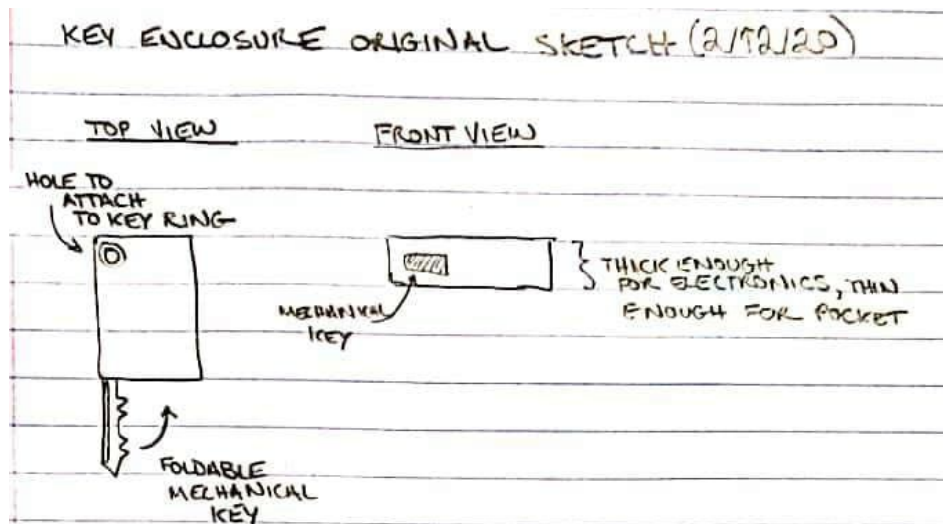 KEY ENCLOSURE ORIGINAL SKETCH (2/12/20)
TOP VIEW
FRONT VIEW
HOLE TO
ATTACH
TO KEY RING
MECHANICAL
KEY
THICK ENOUGH
FOR ELECTRONICS, THIN
ENOUGH FOR POCKET
FOLDABLE
MECHANICAL
KEY